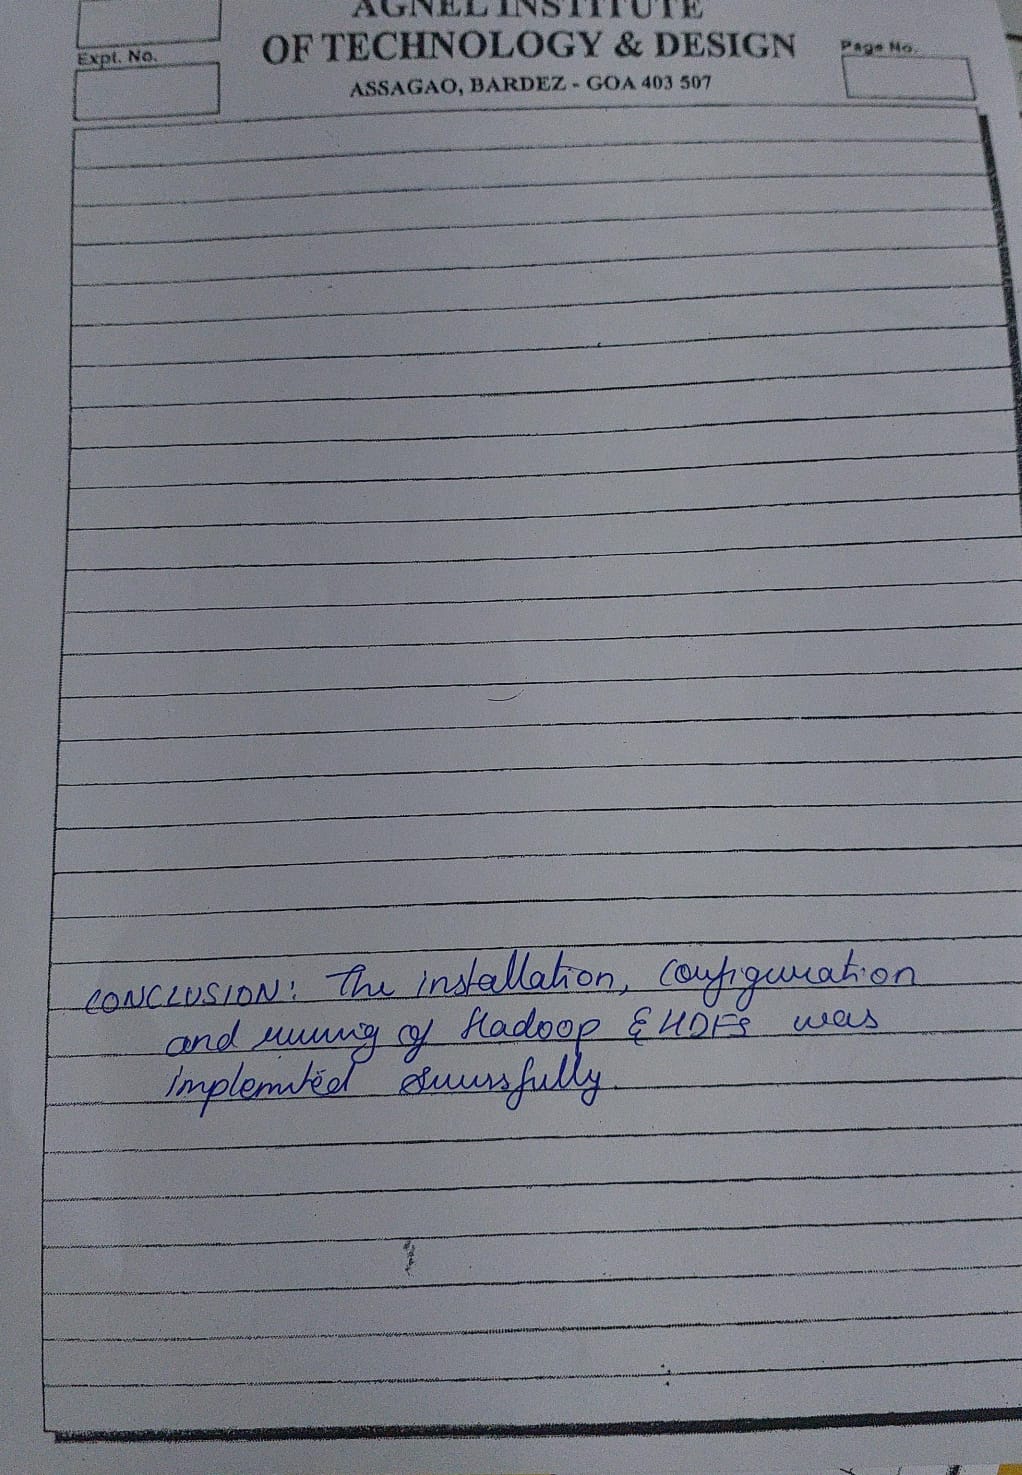 AGNEL INSTITUTE
OF TECHNOLOGY & DESIGN
ASSAGAO, BARDEZ - GOA 403 507
Expt. No.
Page No.
CONCLUSION: The installation, configuration
and running of Hadoop & HDFS was
implemented successfully.